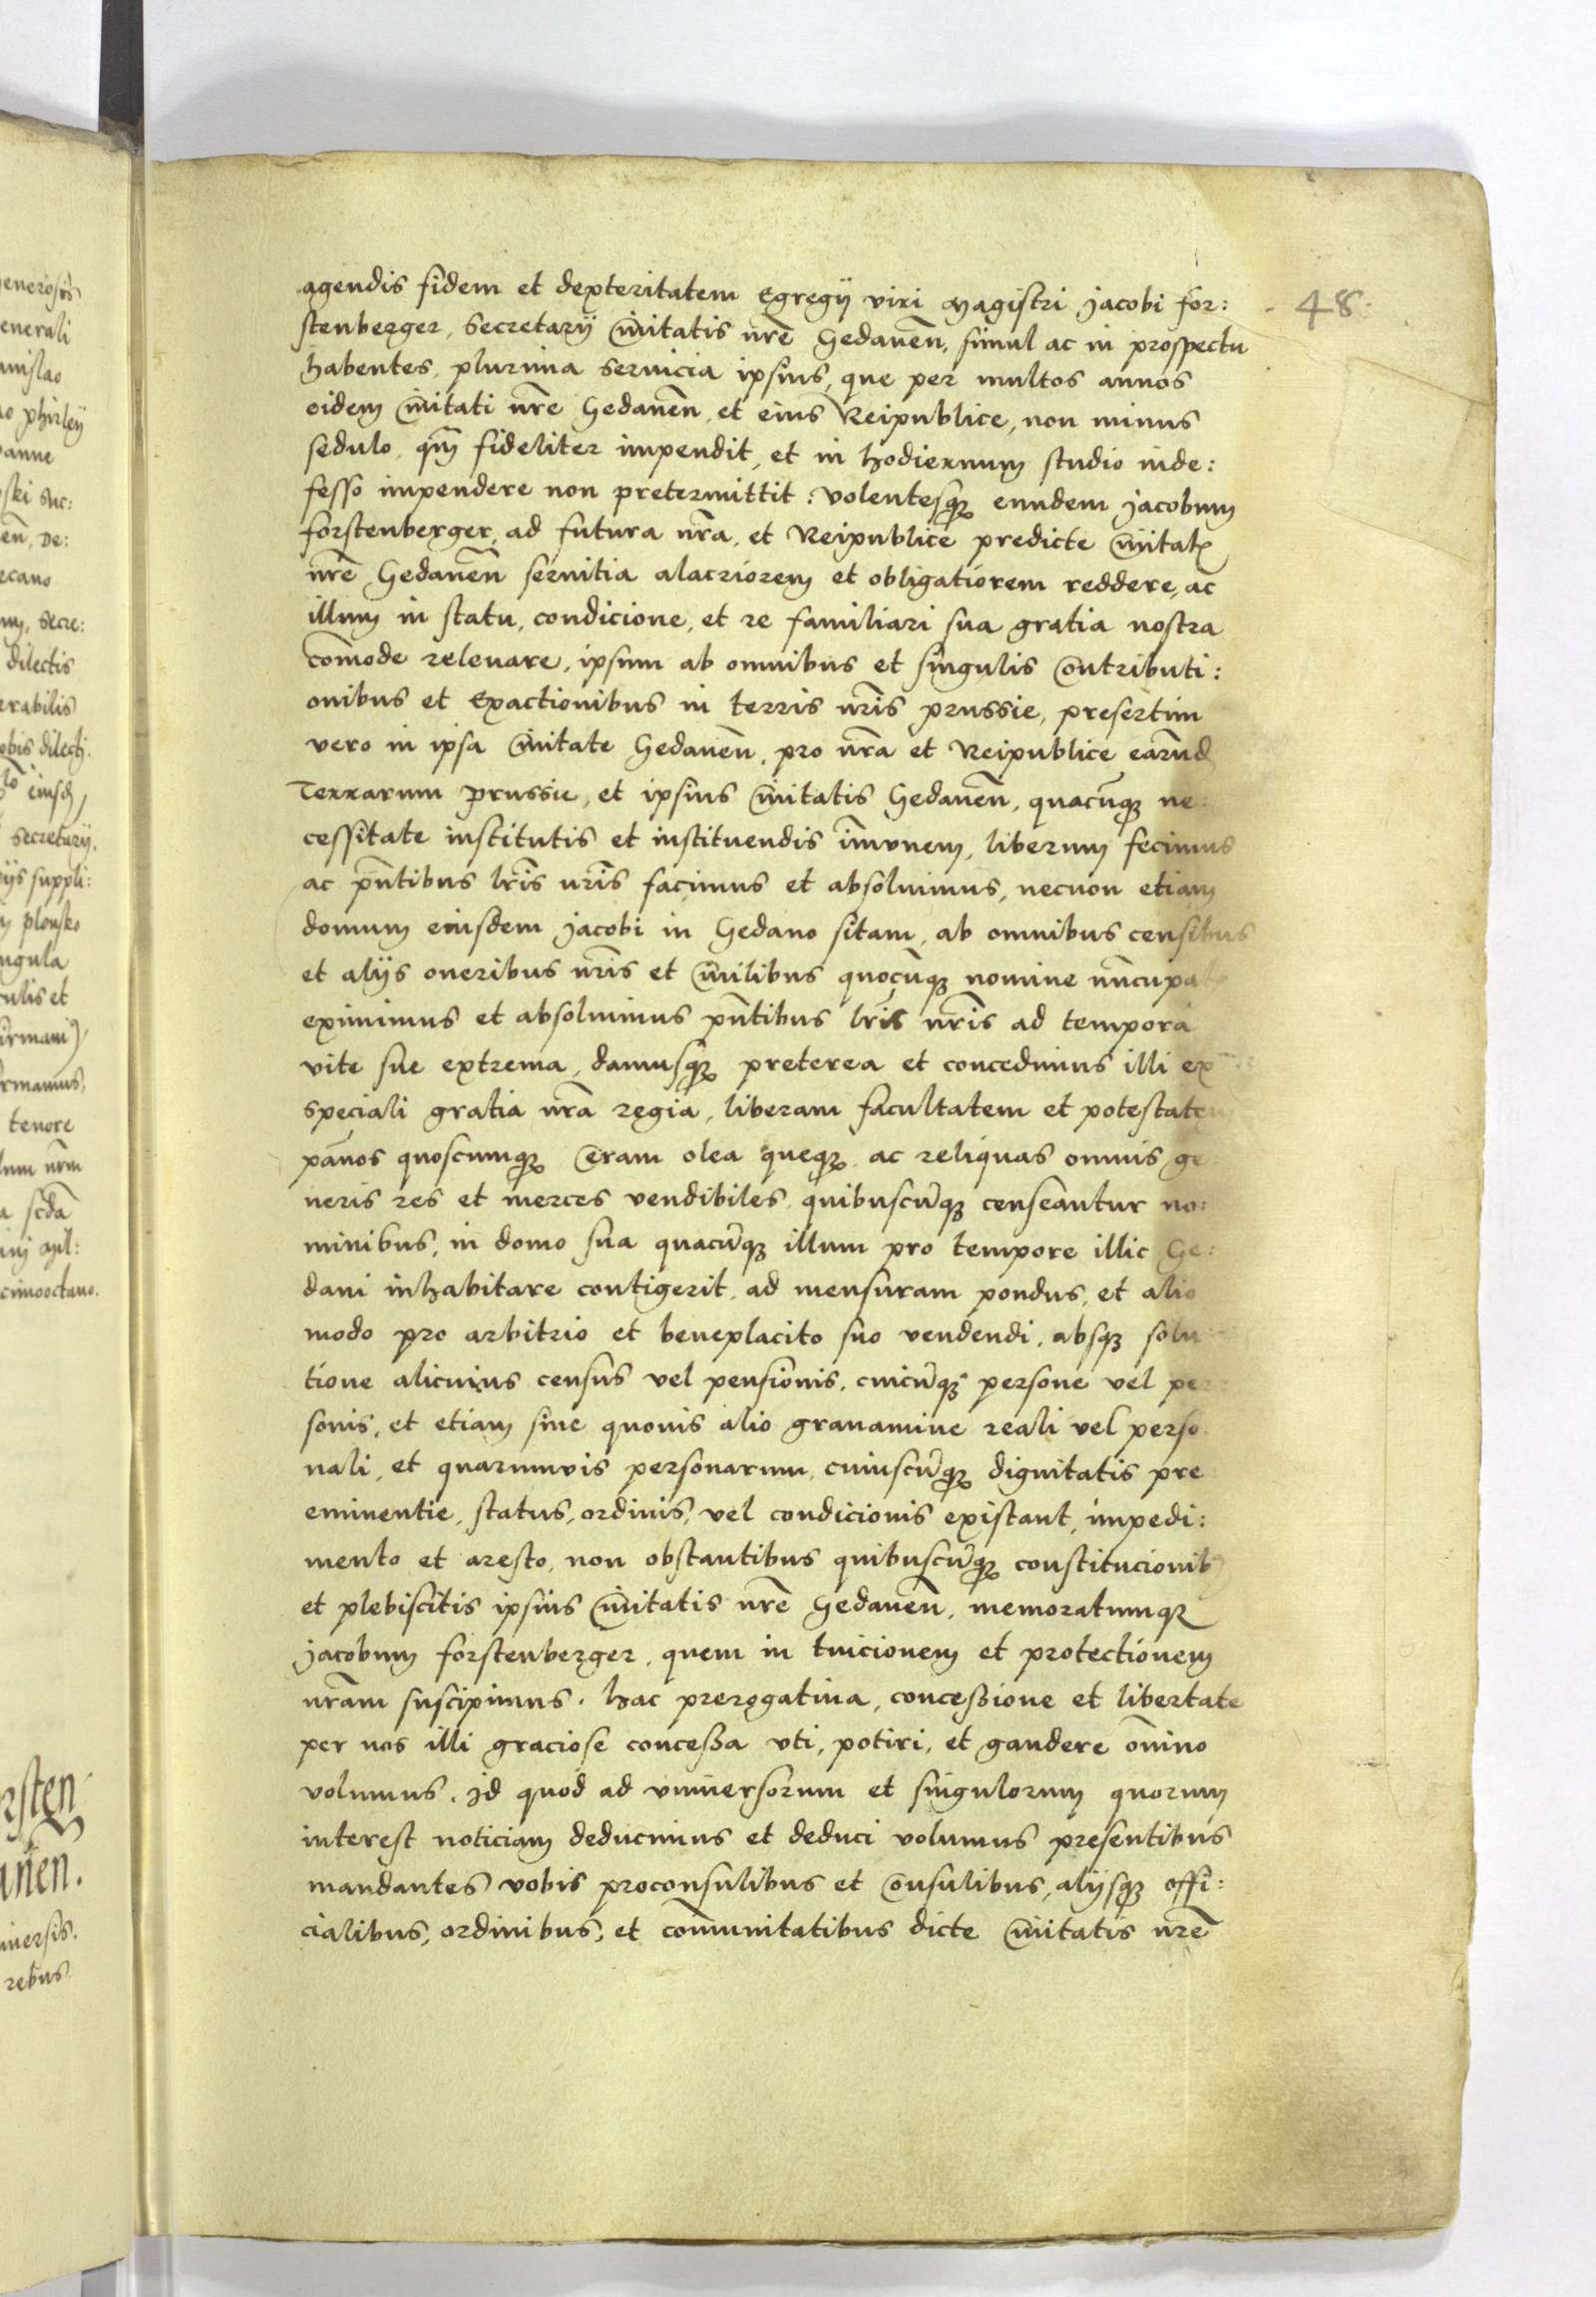 48.
agendis fidem et dexteritatem Egregij viri Magistri Jacobi For:
stenberger, Secretarij Cĩitatis nr̃e Gedaneñ, simul ac in prospectu
habentes, plurima seruicia ipsius, que per multos annos
eidem Cĩitati nr̃e Gedaneñ, et eius Reipublice, non minus
sedulo, qm̃ fideliter impendit, et in hodiernum studio inde:
fesso impendere non pretermittit: volentesqȝ eundem Jacobum
forstenberger, ad futura nr̃a, et Reipublice predicte Cĩitatꝭ
nr̃e Gedaneñ seruitia alacriorem et obligatiorem reddere, ac
illum in statu, condicione, et re familiari sua gratia nostra
com̃ode releuare, ipsum ab omnibus et singulis Contributi:
onibus et Exactionibus in terris nr̃is prussie, presertim
vero in ipsa Cĩitate Gedaneñ, pro nr̃a et Reipublice earund̃
Terrarum Prussie, et ipsius Cĩitatis Gedaneñ, quacũqȝ ne:
cessitate institutis et instituendis im̃vnem, liberum fecimus
ac pñtibus lr̃is nr̃is facimus et absoluimus, necnon etiam
domum eiusdem Jacobi in Gedano sitam, ab omnibus censibus
et alijs oneribus nr̃is et Cĩilibus quocũqȝ nomine nũcupatꝭ
eximimus et absoluimus pñtibus lr̃is nr̃is ad tempora
vite sue extrema, damusqȝ preterea et concedimus illi ex
speciali gratia nr̃a regia, liberam facultatem et potestatem
pãnos quoscumqȝ Ceram olea queqȝ ac reliquas omnis ge:
neris res et merces vendibiles, quibuscũqȝ censeantur no:
minibus, in domo sua quacũqȝ illum pro tempore illic Ge:
dani inhabitare contigerit, ad mensuram pondus, et alio
modo pro arbitrio et beneplacito suo vendendi, absqȝ solu:
tione alicuius census vel pensionis, cuicũqȝ persone vel per:
sonis, et etiam sine quouis alio grauamine reali vel perso
nali, et quarumvis personarum, cuiuscũqȝ dignitatis pre
eminentie, status, ordinis, vel condicionis existant, impedi:
mento et aresto, non obstantibus quibuscũqȝ constitucionibꝯ
et plebiscitis ipsius Cĩitatis nr̃e Gedaneñ, memoratumqȝ
Jacobum forstenberger, quem in tuicionem et protectionem
nr̃am suscipimus, hac prerogatiua, conceßione et libertate
per nos illi graciose conceßa vti, potiri, et gaudere om̃ino
volumus, Jd quod ad vniuersorum et singulorum quorum
interest noticiam deducimus et deduci volumus presentibus
mandantes vobis proconsulibus et Consulibus, alijsqȝ offi:
cialibus, ordinibus, et com̃unitatibus dicte Cĩitatis nr̃e